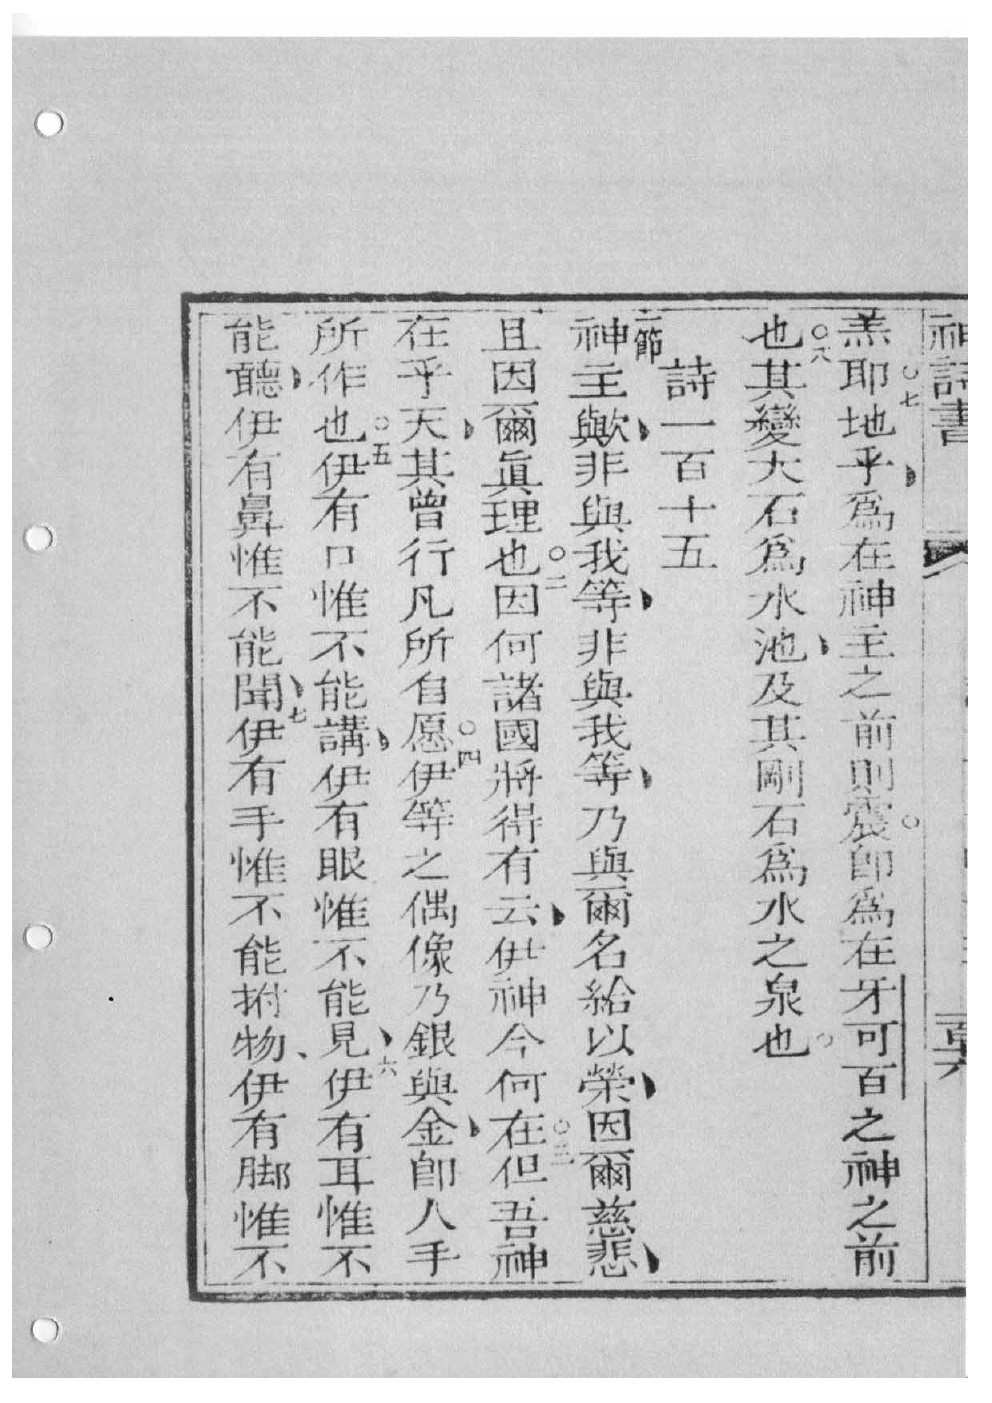 神詩書
羔耶○七地乎爲在神主之前則震○卽爲在牙可百之神之前
也○八其變大石爲水池及其剛石爲水之泉也○
詩一百十五
一節神主歟非與我等非與我等乃與爾名給以榮因爾慈悲
且因爾眞理也○二因何諸國將得有云伊神今何在○三但吾神
在乎天其曾行凡所自愿○四伊等之偶像乃銀與金卽人手
所作也○五伊有口惟不能講伊有眼惟不能見六伊有耳惟不
能聽伊有鼻惟不能聞七伊有手惟不能拊物、伊有脚惟不